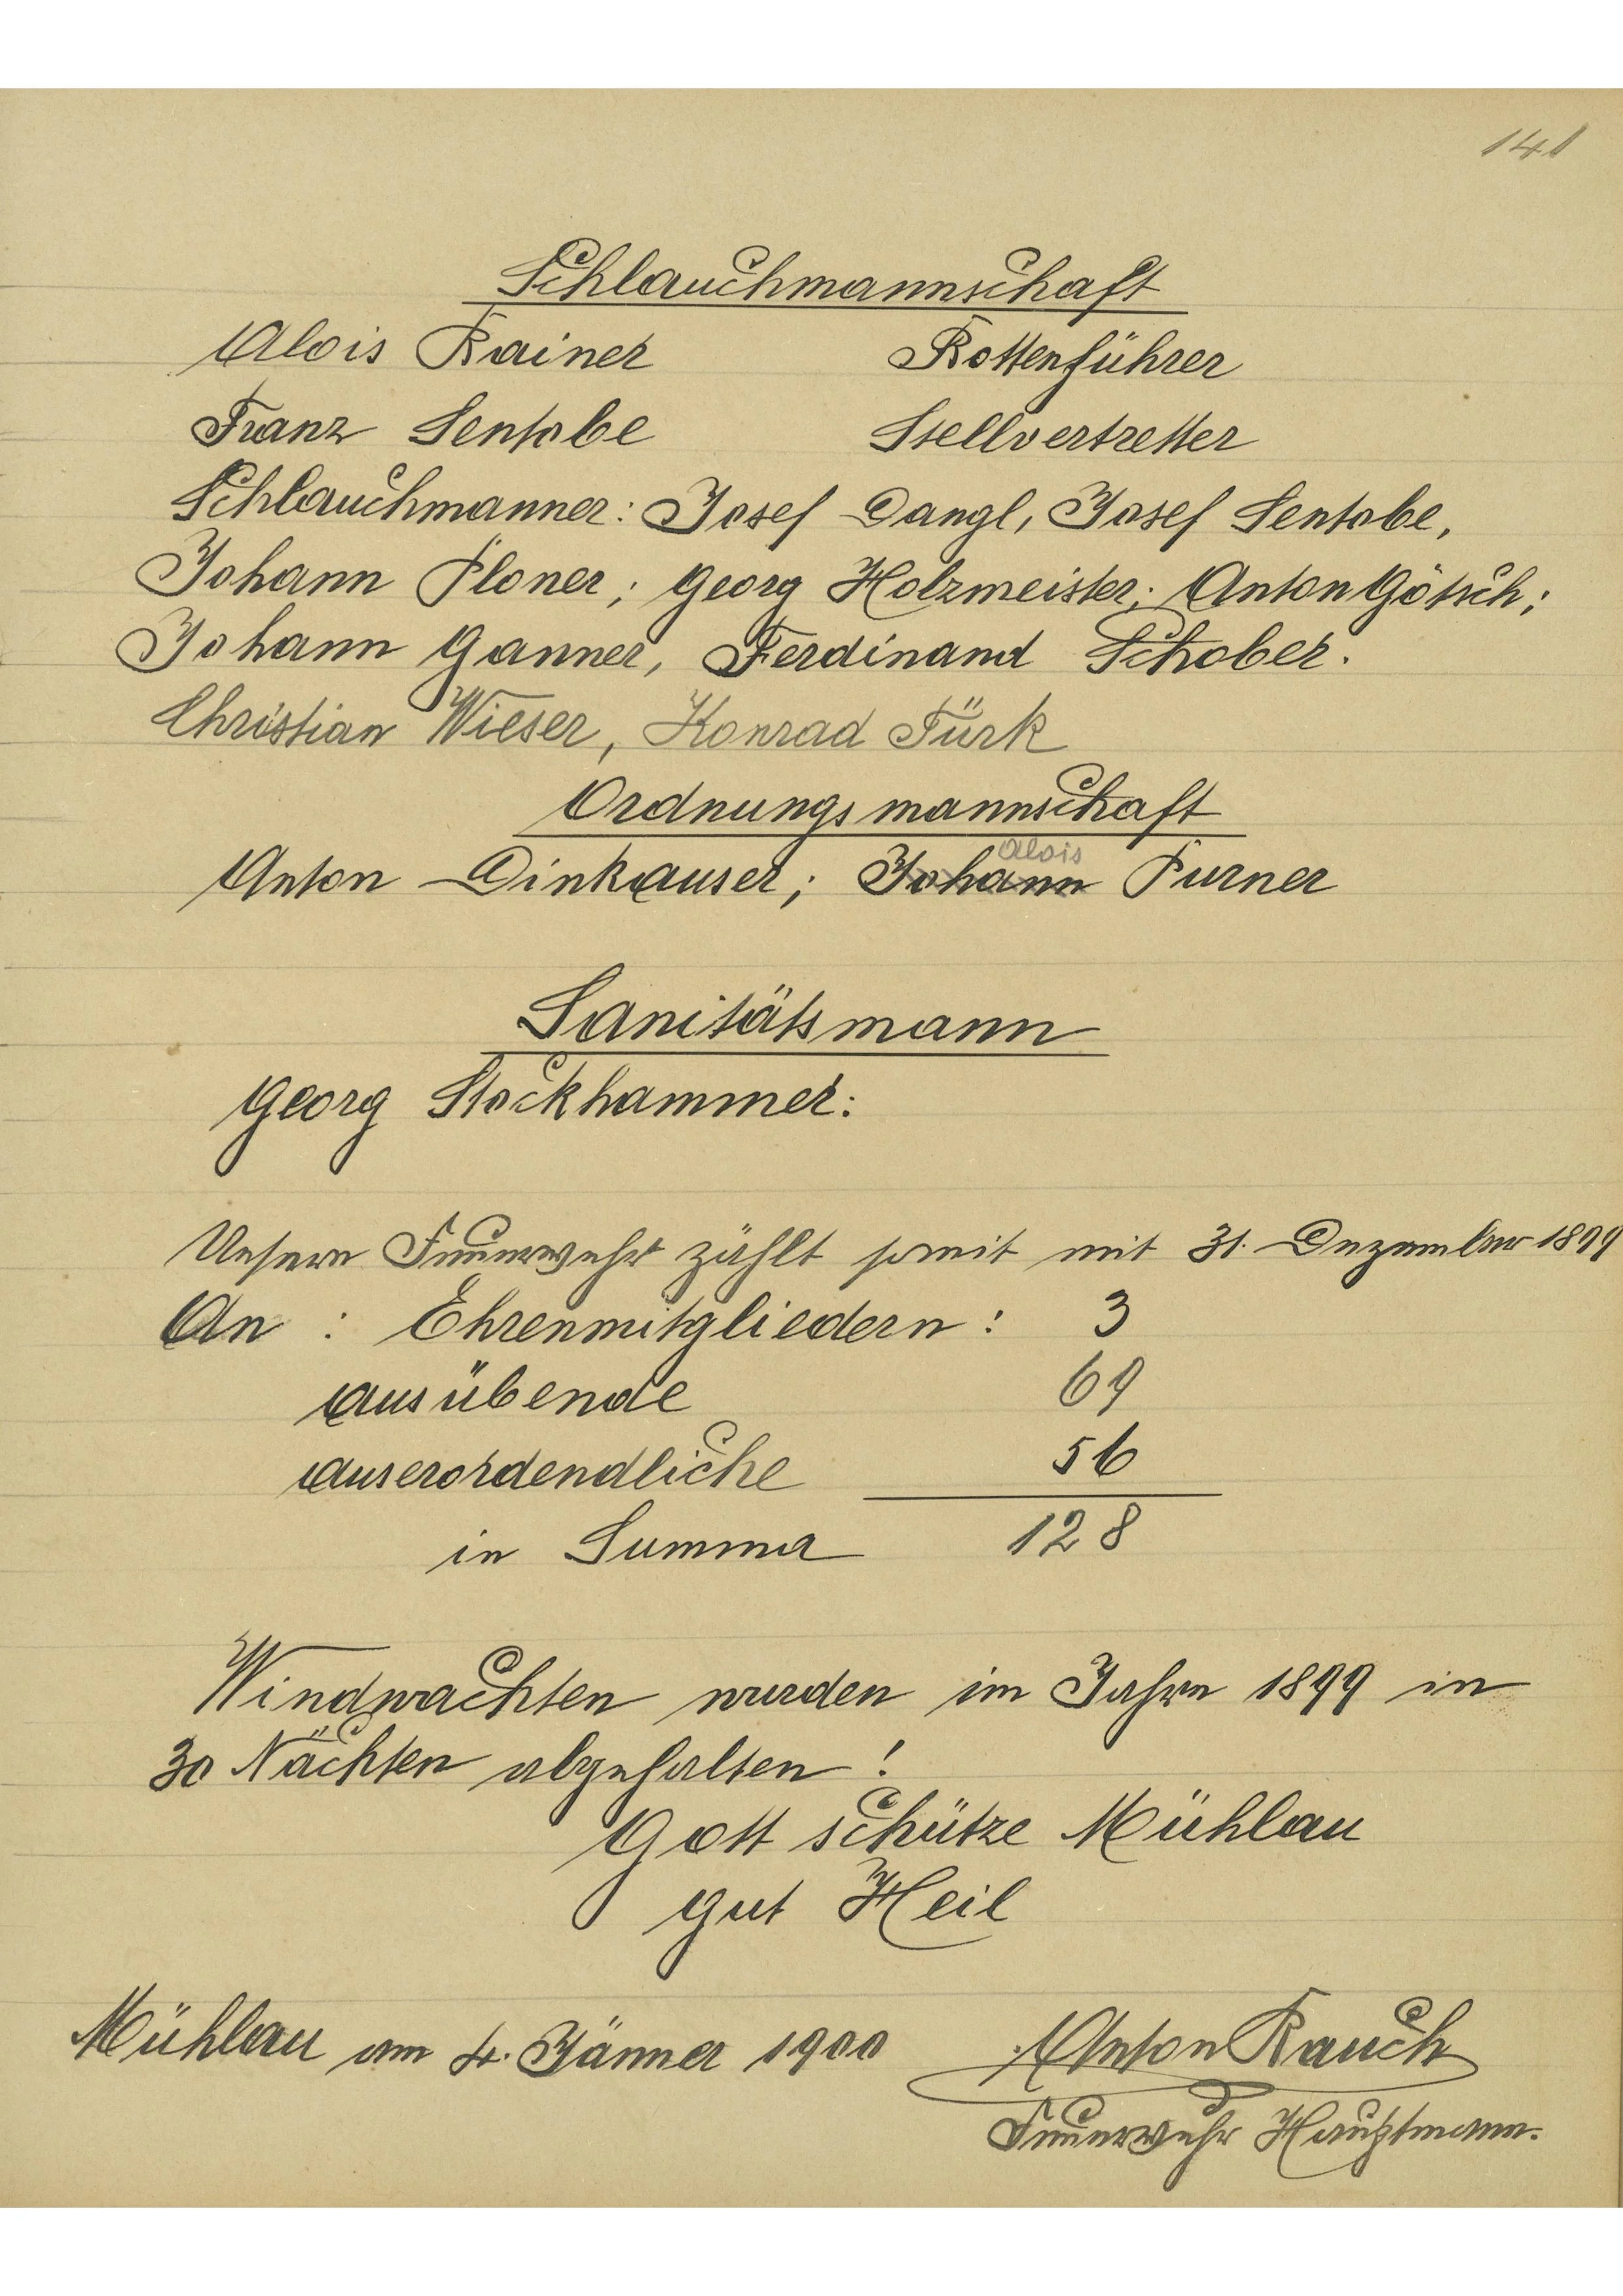 141
Schlauchmannschaft
Alois Rainer Rottenführer
Franz Sentobe Stellvertretter
Schlauchmanner: Josef Dangl, Josef Sentobe,
Johann Ploner; Georg Holzmeister; Anton Götsch;
Johann Ganner, Ferdinand Schober.
Christian Wieser, Konrad Türk
Ordnungsmannschaft
Alois
Anton Dinkhauser; Johann Purner
Sanitätsmann
Georg Stockhammer:
Unsere Feuerwehr zählt somit mit 31. Dezember 1899
An : Ehrenmitgliedern: 3
ausübende 69
auserordendliche 56
in Summa 128
Windwachten wurden im Jahre 1899 in
30 Nächten abgehalten!
Gott schütze Mühlau
gut Heil
Mühlau am 4. Jänner 1900 Anton Rauch
Feuerwehr Hauptmann.